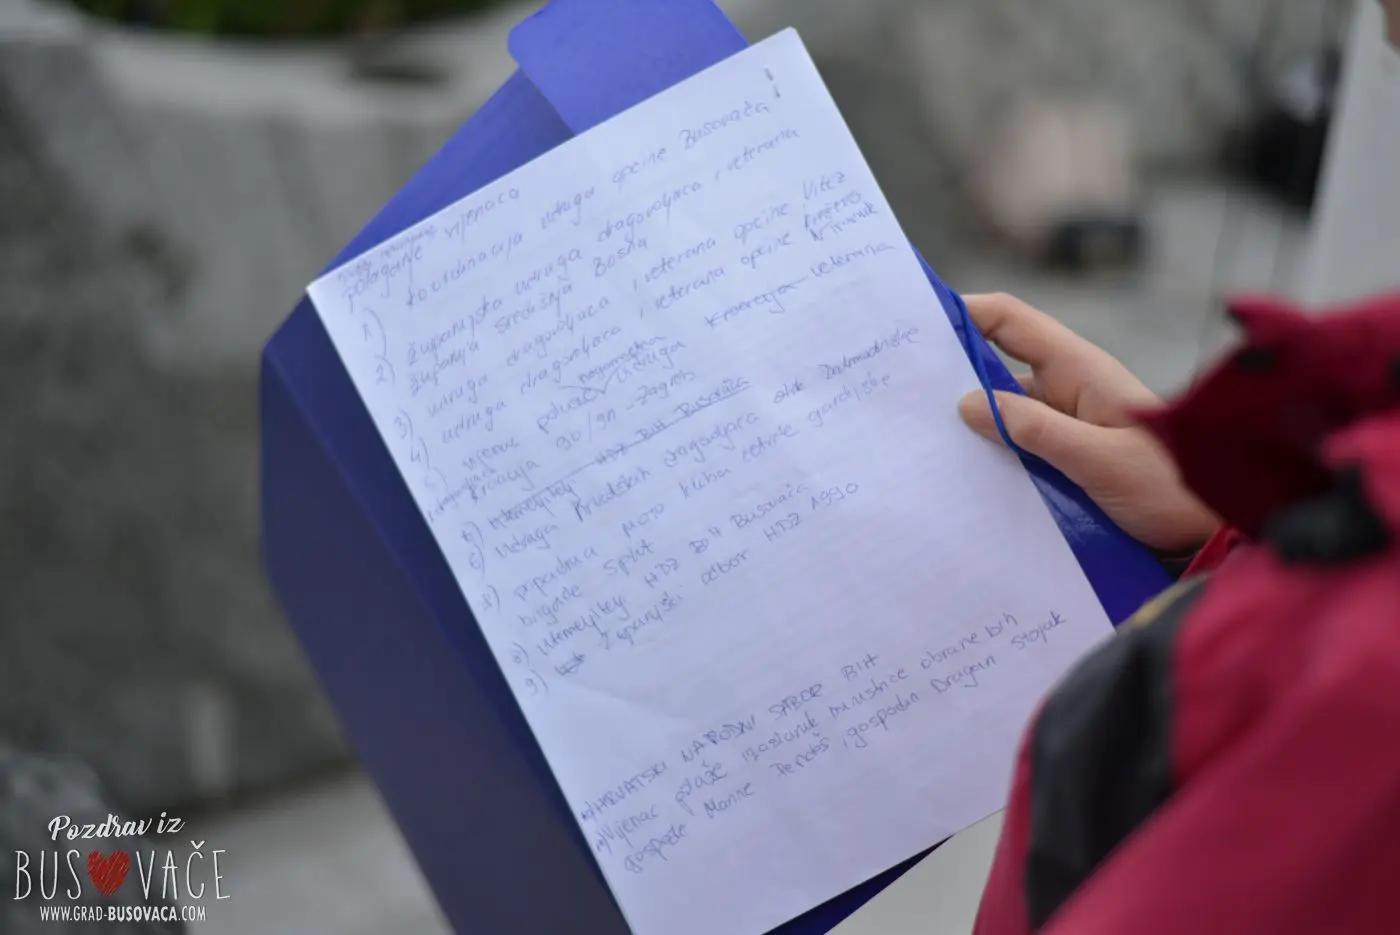 polaganje vijenaca
1) koordinacija udruga općine Busovača
2) županijska udruga dragovoljaca i veterana
županija središnja Bosna
3) udruga dragovoljaca i veterana općine Vitez
4) udruga dragovoljaca i veterana općine Kreševo
vijenac polaže udruga veterana
Kroacija 90/91 - Zagreb
utemeljitelji HDZ BIH Busovača
6) udruga hrvatskih dragovoljaca
pripadnika MOTO kluba četvrte gardijske
brigade Split
8) utemeljitelji HDZ BiH Busovača
9) županijski odbor HDZ 1990
HRVATSKI NARODNI SABOR BIH
Vijenac polaže izaslanik ministrice obrane bih
gospođe Marine Pendeš, gospodin Dragan Stojak
Pozdrav iz
BUSOVAČE
WWW.GRAD-BUSOVACA.COM